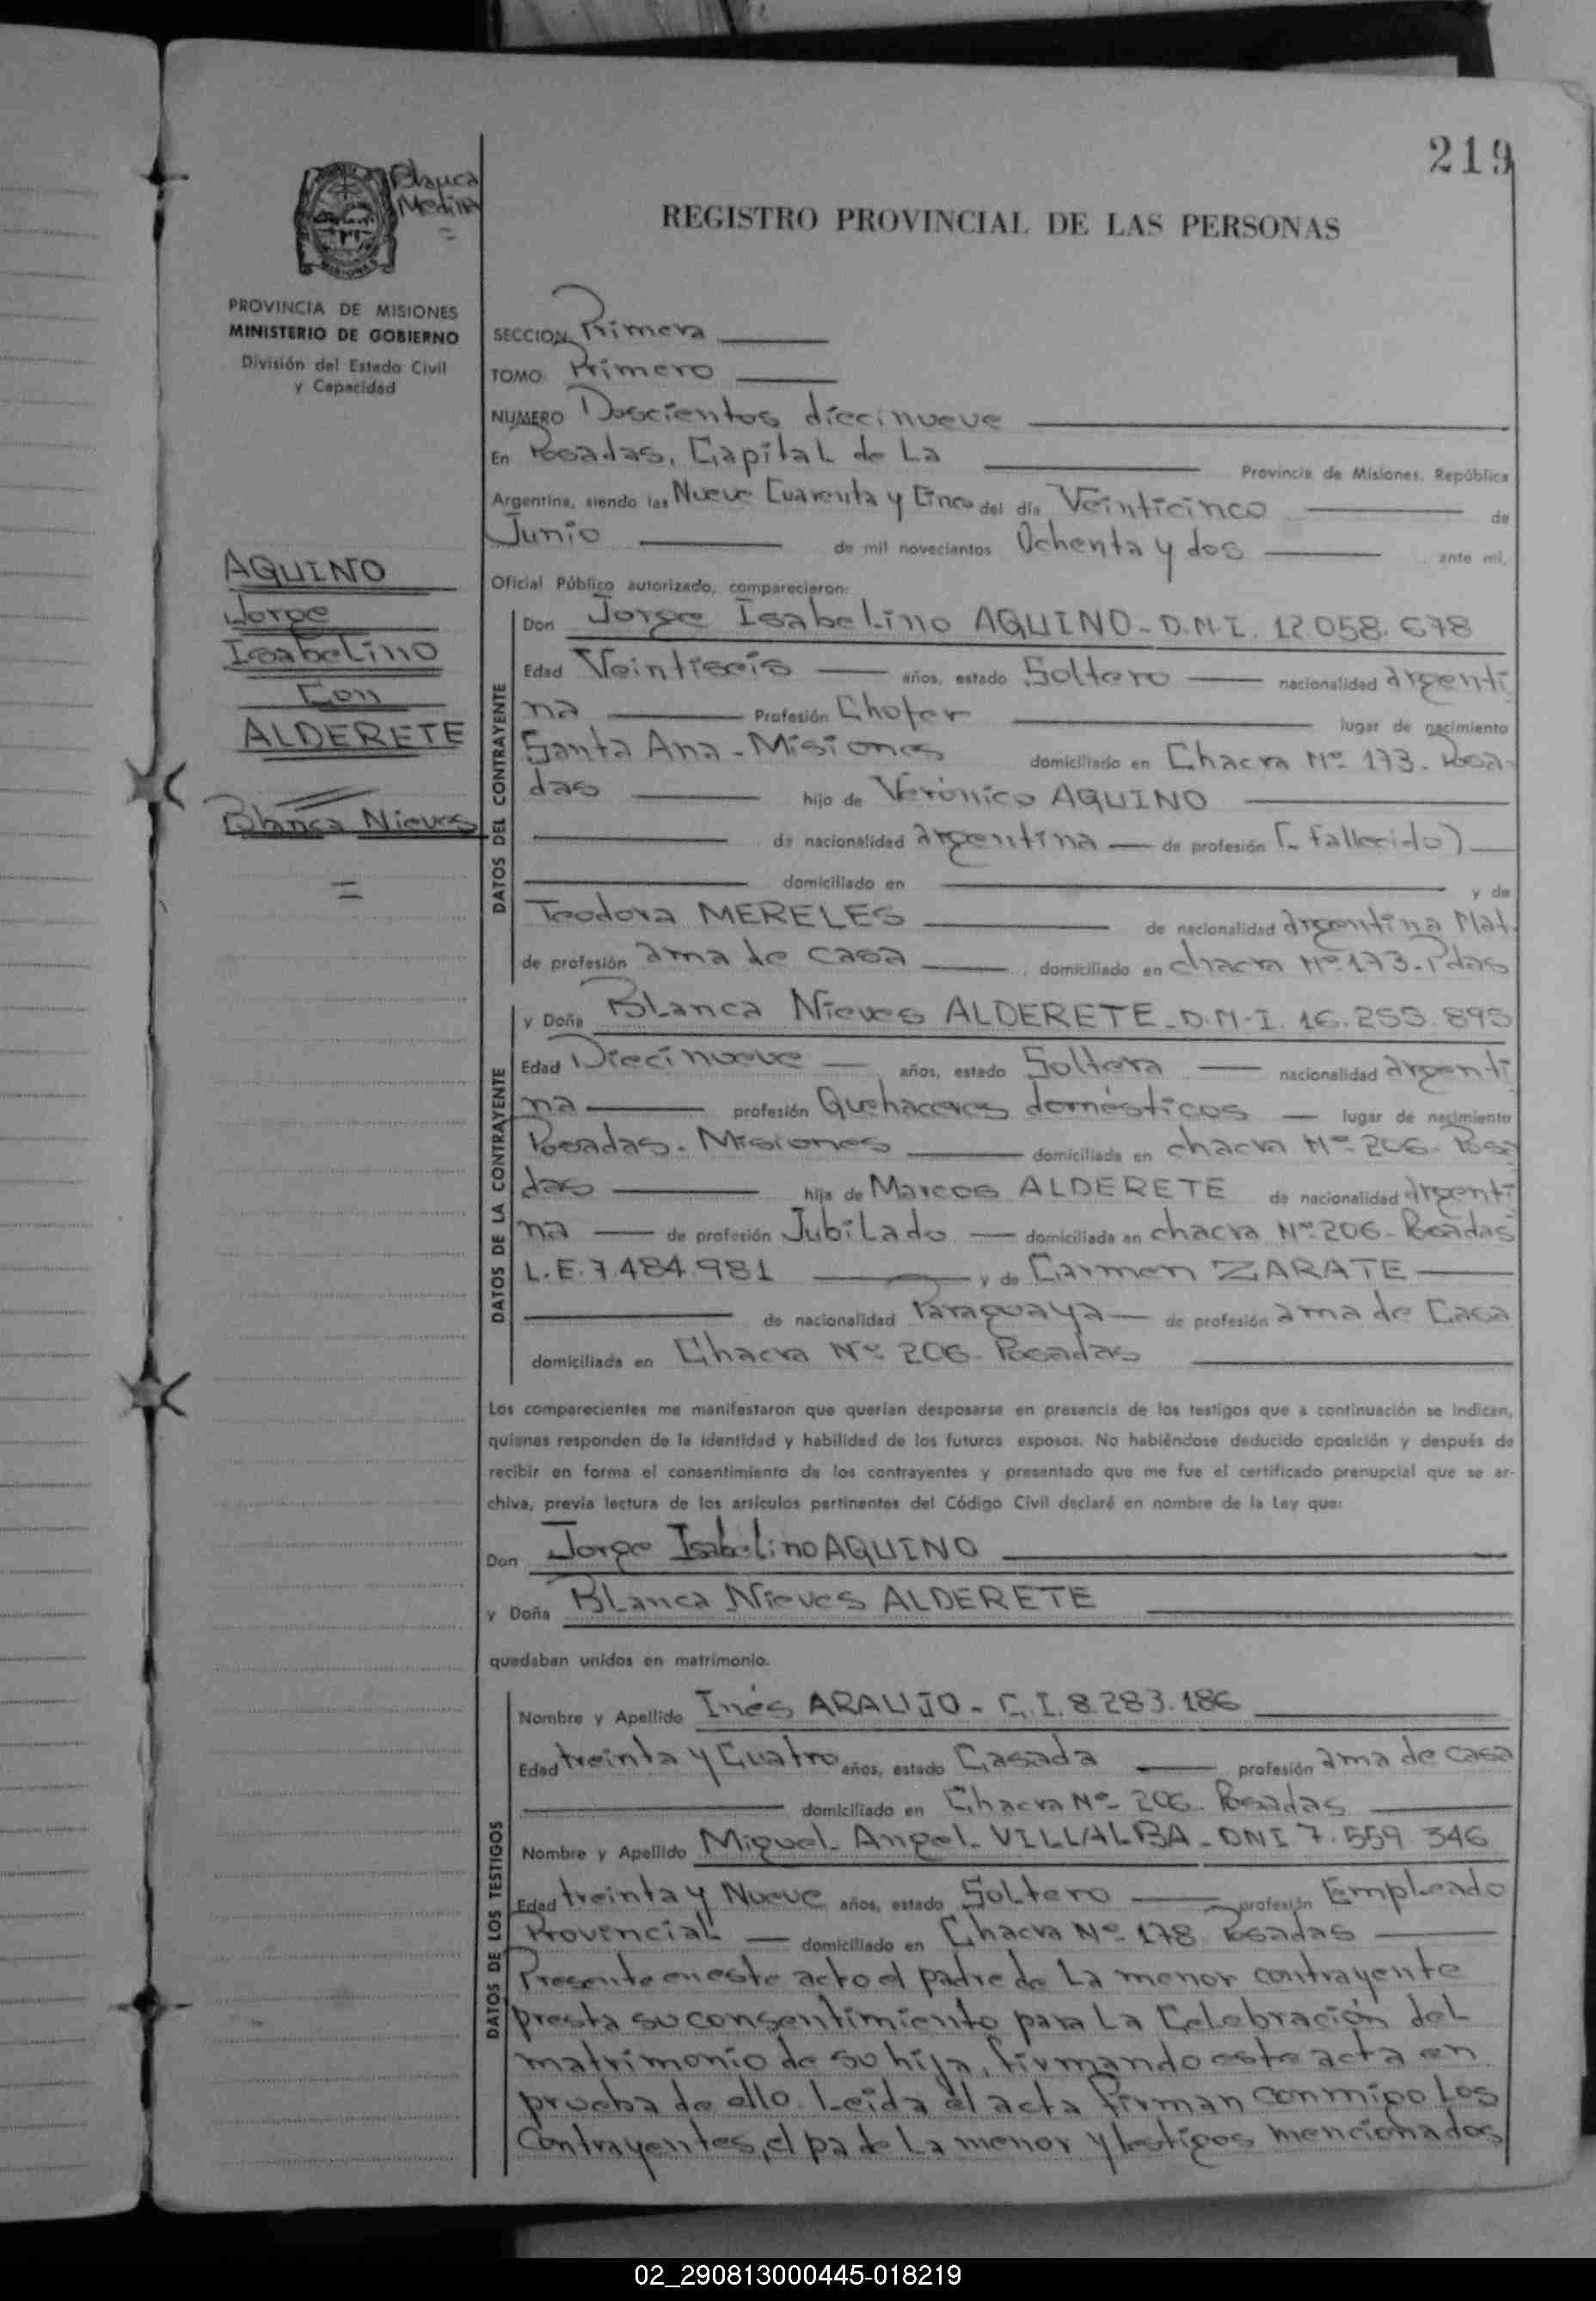 219
Blanca
Medina
=
REGISTRO PROVINCIAL DE LAS PERSONAS
MISIONES
PROVINCIA DE MISIONES
MINISTERIO DE GOBIERNO
División del Estado Civil
y Capacidad
SECCION Primera
TOMO Primero
NUMERO Doscientos diecinueve
En Posadas, Capital de La Provincia de Misiones, República
Argentina, siendo las Nueve Cuarenta y Cinco del día Veinticinco de
Junio de mil novecientos Ochenta y dos ante mi,
Oficial Público autorizado, comparecieron:
AQUINO
Jorge
Isabelino
Con
ALDERETE
Blanca Nieves
=
DATOS DEL CONTRAYENTE
Don Jorge Isabelino AQUINO - D.N.I. 12.058.678
Edad Veintiseis años, estado Soltero nacionalidad argenti
na Profesión Chofer lugar de nacimiento
Santa Ana - Misiones domiciliado en Chacra Nº 173. Posa-
das hijo de Verónico AQUINO
de nacionalidad argentina de profesión (- fallecido)
domiciliado en y de
Teodora MERELES de nacionalidad argentina Nat.
de profesión ama de casa domiciliado en chacra Nº 173. Pdas
DATOS DE LA CONTRAYENTE
y Doña Blanca Nieves ALDERETE - D.N.I. 16.255.895
Edad Diecinueve años, estado Soltera nacionalidad argenti
na profesión Quehaceres domésticos lugar de nacimiento
Posadas. Misiones domiciliada en chacra Nº 206. Posa
das hija de Marcos ALDERETE de nacionalidad argenti
na de profesión Jubilado domiciliada en chacra Nº 206 - Posadas
L.E. 7.484.981 y de Carmen ZARATE
de nacionalidad Paraguaya de profesión ama de Casa
domiciliada en Chacra Nº 206 - Posadas
Los comparecientes me manifestaron que querían desposarse en presencia de los testigos que a continuación se indican,
quienes responden de la identidad y habilidad de los futuros esposos. No habiéndose deducido oposición y después de
recibir en forma el consentimiento de los contrayentes y presentado que me fue el certificado prenupcial que se ar-
chiva, previa lectura de los artículos pertinentes del Código Civil declaré en nombre de la Ley que:
Don Jorge Isabelino AQUINO
y Doña Blanca Nieves ALDERETE
quedaban unidos en matrimonio.
DATOS DE LOS TESTIGOS
Nombre y Apellido Inés ARAUJO - C.I. 8.283.186
Edad treinta y Cuatro años, estado Casada profesión ama de casa
domiciliado en Chacra Nº 206. Posadas
Nombre y Apellido Miguel Angel VILLALBA - DNI 7.559.346
Edad treinta y Nueve años, estado Soltero profesión Empleado
Provincial domiciliado en Chacra Nº 178 Posadas
Presente en este acto el padre de La menor contrayente
presta su consentimiento para La Celebración del
matrimonio de su hija, firmando este acta en
prueba de ello. Leida el acta firman conmigo Los
Contrayentes, el pa de La menor y testigos mencionados
02_290813000445-018219